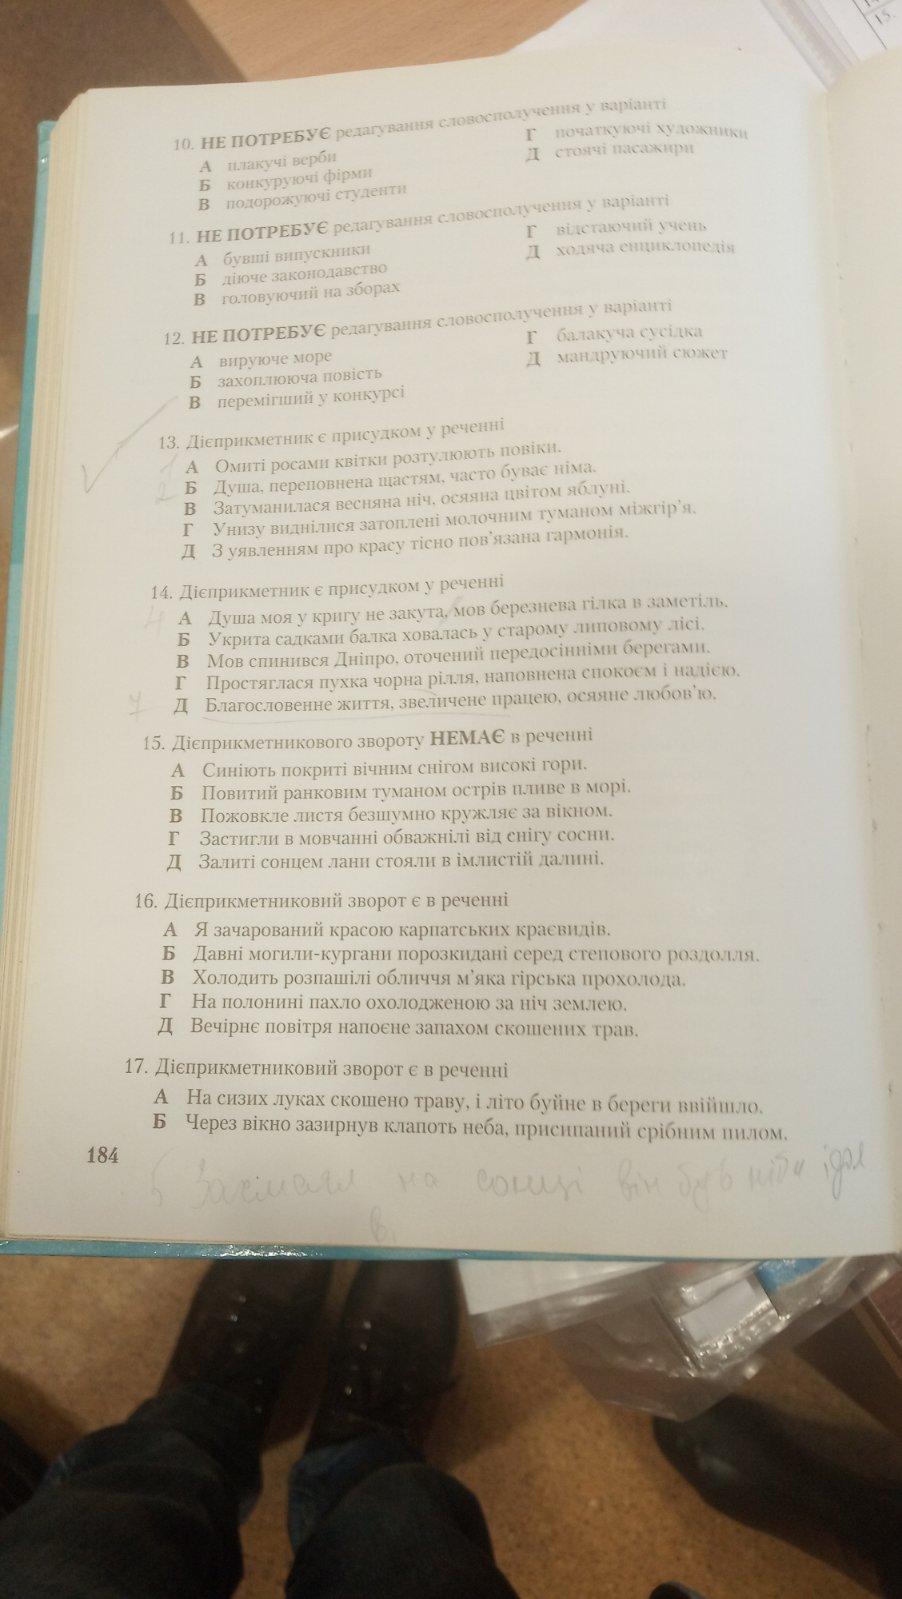 14
15.
10. НЕ ПОТРЕБУЄ редагування словосполучення у варіанті
А плакучі верби
Б конкуруючі фірми
В подорожуючі студенти
Г початкуючі художники
Д стоячі пасажири
11. НЕ ПОТРЕБУЄ редагування словосполучення у варіанті
А бувші випускники
Б діюче законодавство
В головуючий на зборах
Г відстаючий учень
Д ходяча енциклопедія
12. НЕ ПОТРЕБУЄ редагування словосполучення у варіанті
А вируюче море
Б захоплююча повість
В перемігший у конкурсі
Г балакуча сусідка
Д мандруючий сюжет
13. Дієприкметник є присудком у реченні
А Омиті росами квітки розтулюють повіки.
Б Душа, переповнена щастям, часто буває німа.
В Затуманилася весняна ніч, осяяна цвітом яблуні.
Г Унизу виднілися затоплені молочним туманом міжгір'я.
Д З уявленням про красу тісно пов'язана гармонія.
14. Дієприкметник є присудком у реченні
А Душа моя у кригу не закута, мов березнева гілка в заметіль.
Б Укрита садками балка ховалась у старому липовому лісі.
В Мов спинився Дніпро, оточений передосінніми берегами.
Г Простяглася пухка чорна рілля, наповнена спокоєм і надією.
Д Благословенне життя, звеличене працею, осяяне любов'ю.
15. Дієприкметникового звороту НЕМАЄ в реченні
А Синіють покриті вічним снігом високі гори.
Б Повитий ранковим туманом острів пливе в морі.
В Пожовкле листя безшумно кружляє за вікном.
Г Застигли в мовчанні обважнілі від снігу сосни.
Д Залиті сонцем лани стояли в імлистій далині.
16. Дієприкметниковий зворот є в реченні
А Я зачарований красою карпатських краєвидів.
Б Давні могили-кургани порозкидані серед степового роздолля.
В Холодить розпашілі обличчя м'яка гірська прохолода.
Г На полонині пахло охолодженою за ніч землею.
Д Вечірнє повітря напоєне запахом скошених трав.
17. Дієприкметниковий зворот є в реченні
А На сизих луках скошено траву, і літо буйне в береги ввійшло.
Б Через вікно зазирнув клапоть неба, присипаний срібним пилом.
184
на сонці він був